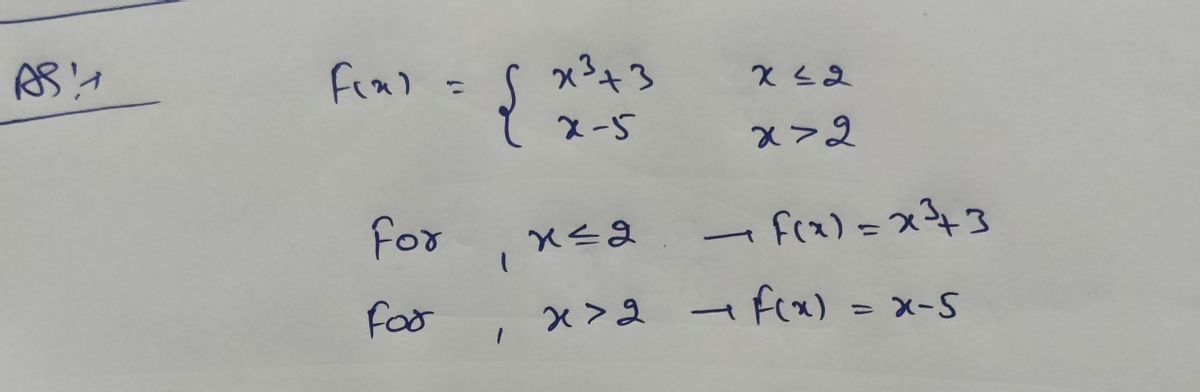 f(x) = { x³+3 x ≤ 2
x-5 x > 2
for , x ≤ 2 → f(x) = x³+3
for , x > 2 → f(x) = x-5